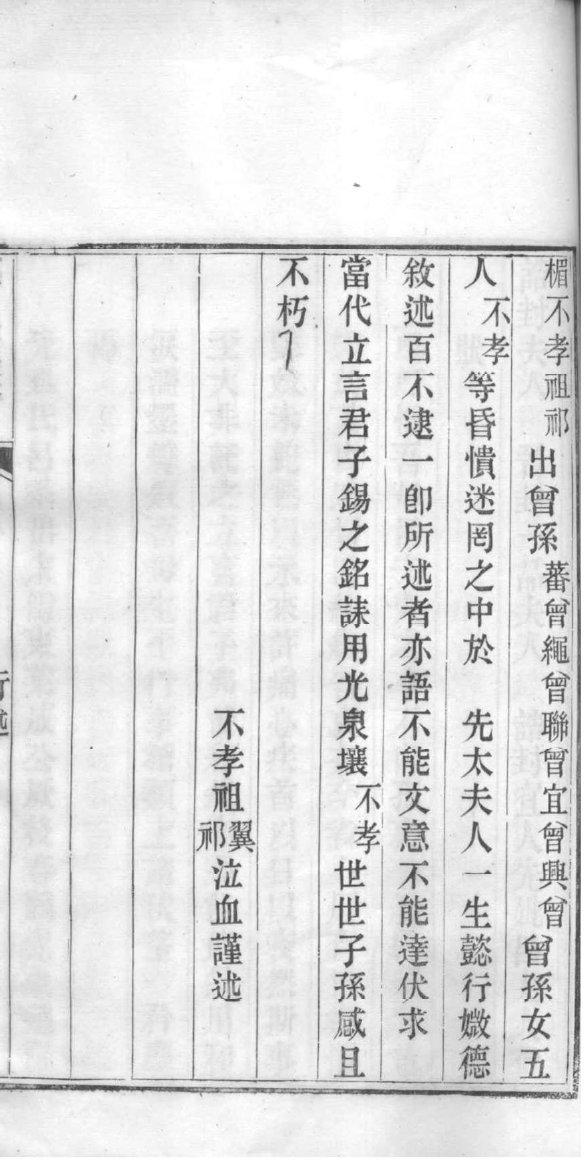 楣不孝祖祁出曾孫蕃曾繩曾聯曾宜曾興曾曾孫女五
人不孝等昏憒迷罔之中於　先太夫人一生懿行媺德
敘述百不逮一卽所述者亦語不能文意不能達伏求
當代立言君子錫之銘誄用光泉壤不孝世世子孫感且
不朽
不孝祖翼祁泣血謹述
行述